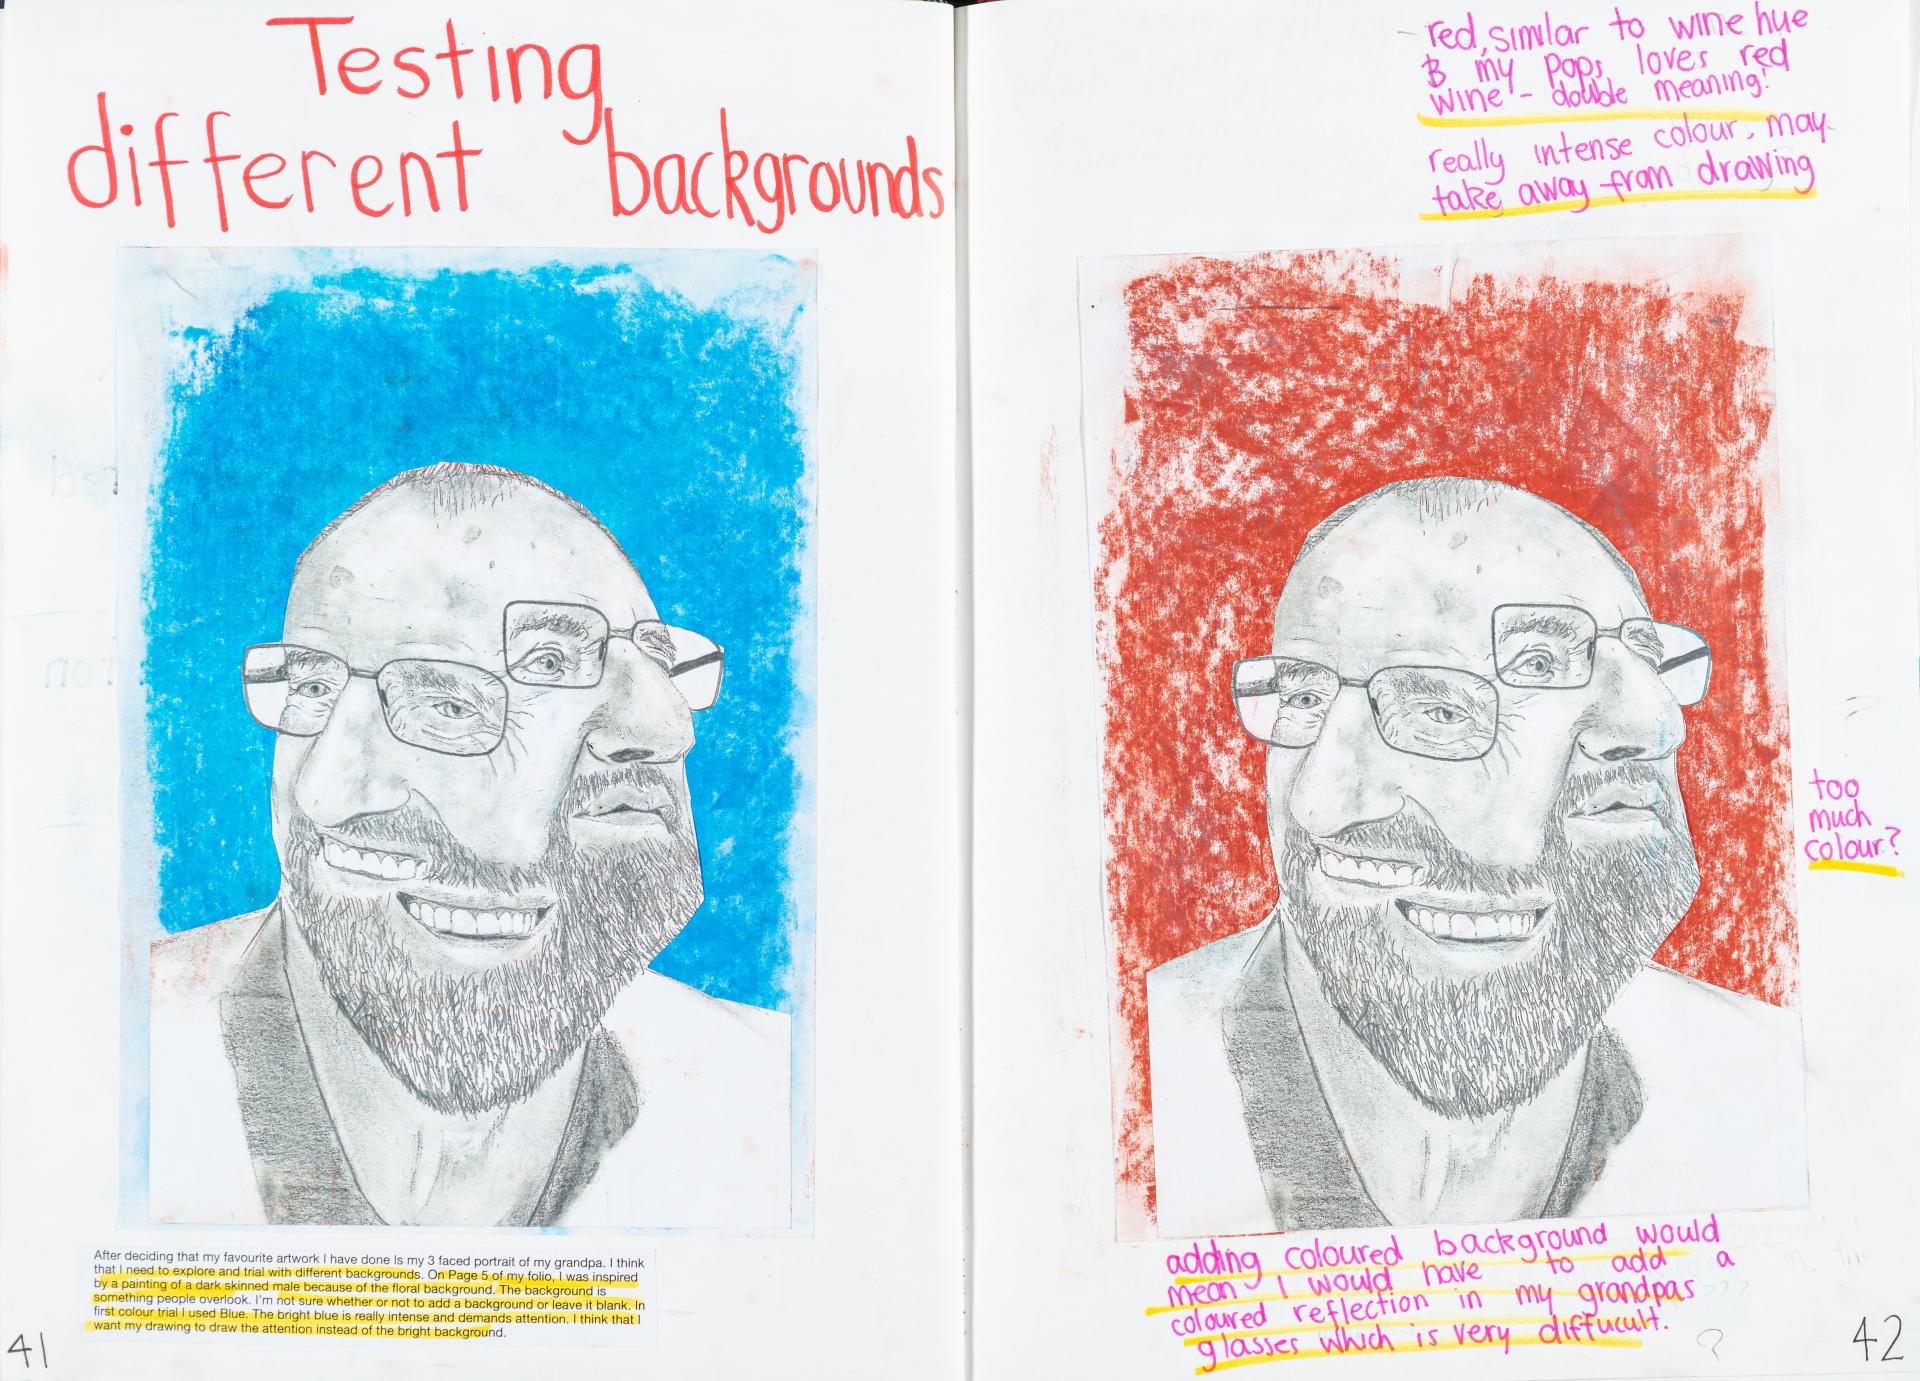 Testing
different backgrounds
After deciding that my favourite artwork I have done Is my 3 faced portrait of my grandpa. I think
that I need to explore and trial with different backgrounds. On Page 5 of my folio, I was inspired
by a painting of a dark skinned male because of the floral background. The background is
something people overlook. I'm not sure whether or not to add a background or leave it blank. In
first colour trial I used Blue. The bright blue is really intense and demands attention. I think that I
want my drawing to draw the attention instead of the bright background.
41
red, similar to wine hue
& my pops loves red
wine - double meaning!
really intense colour, may
take away from drawing
too
much
colour?
adding coloured background would
mean I would have to add a
coloured reflection in my grandpas
glasses which is very diffucult.
?
42